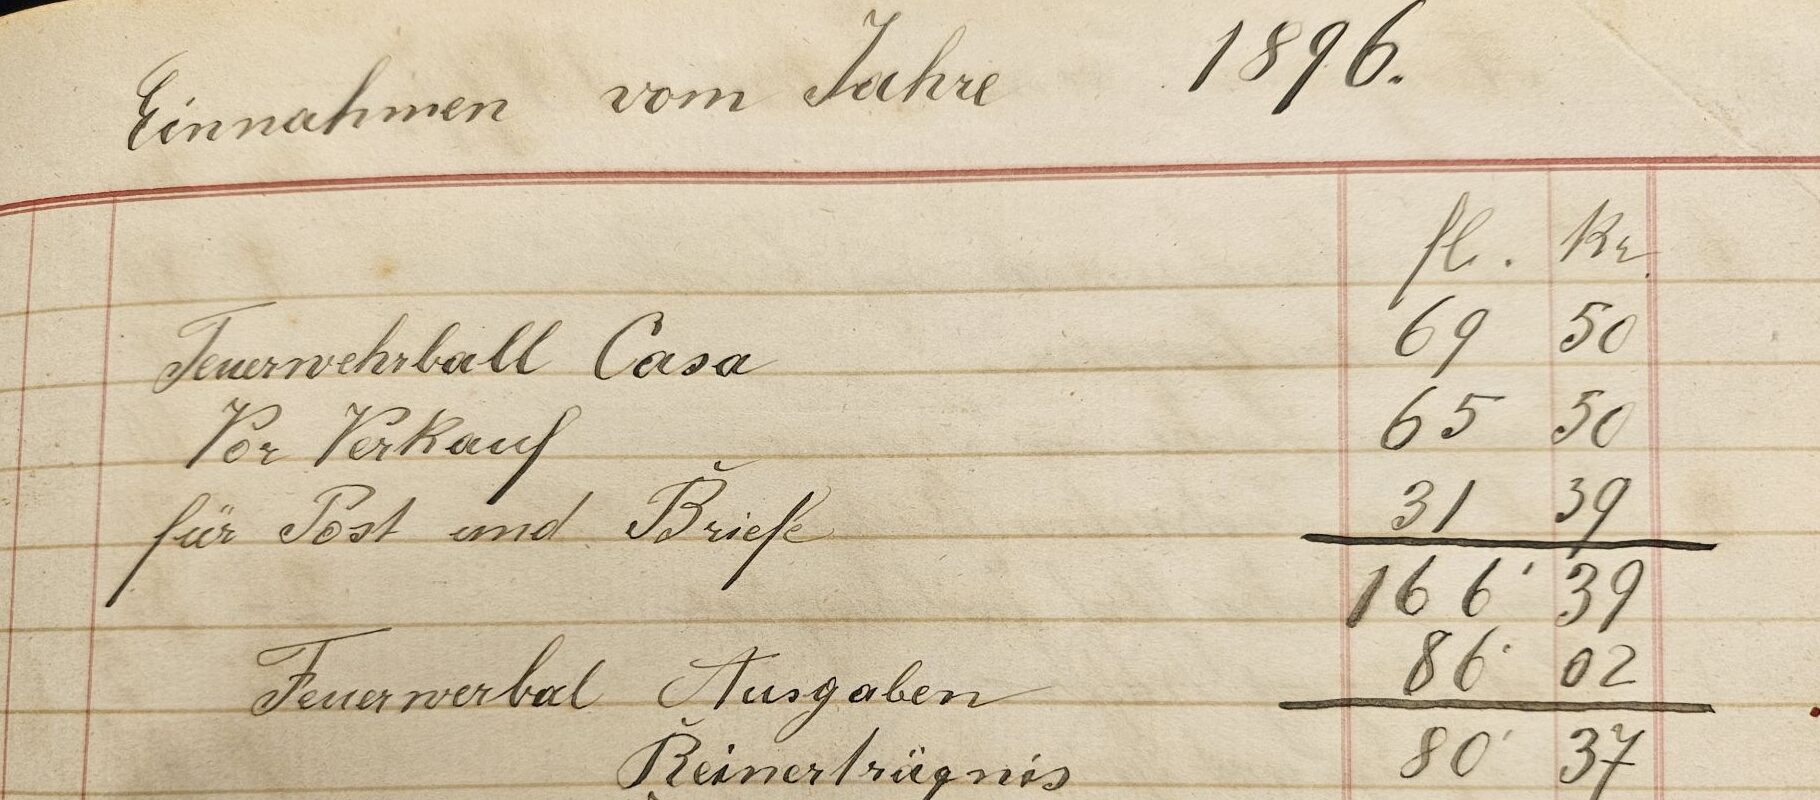 Einnahmen vom Jahre 1896.
fl. Kr.
Feuerwehrball Casa 69 50
Vor Verkauf 65 50
für Post und Briefe 31 39
166 39
Feuerwerbal Ausgaben 86 02
Reinerträgnis 80 37